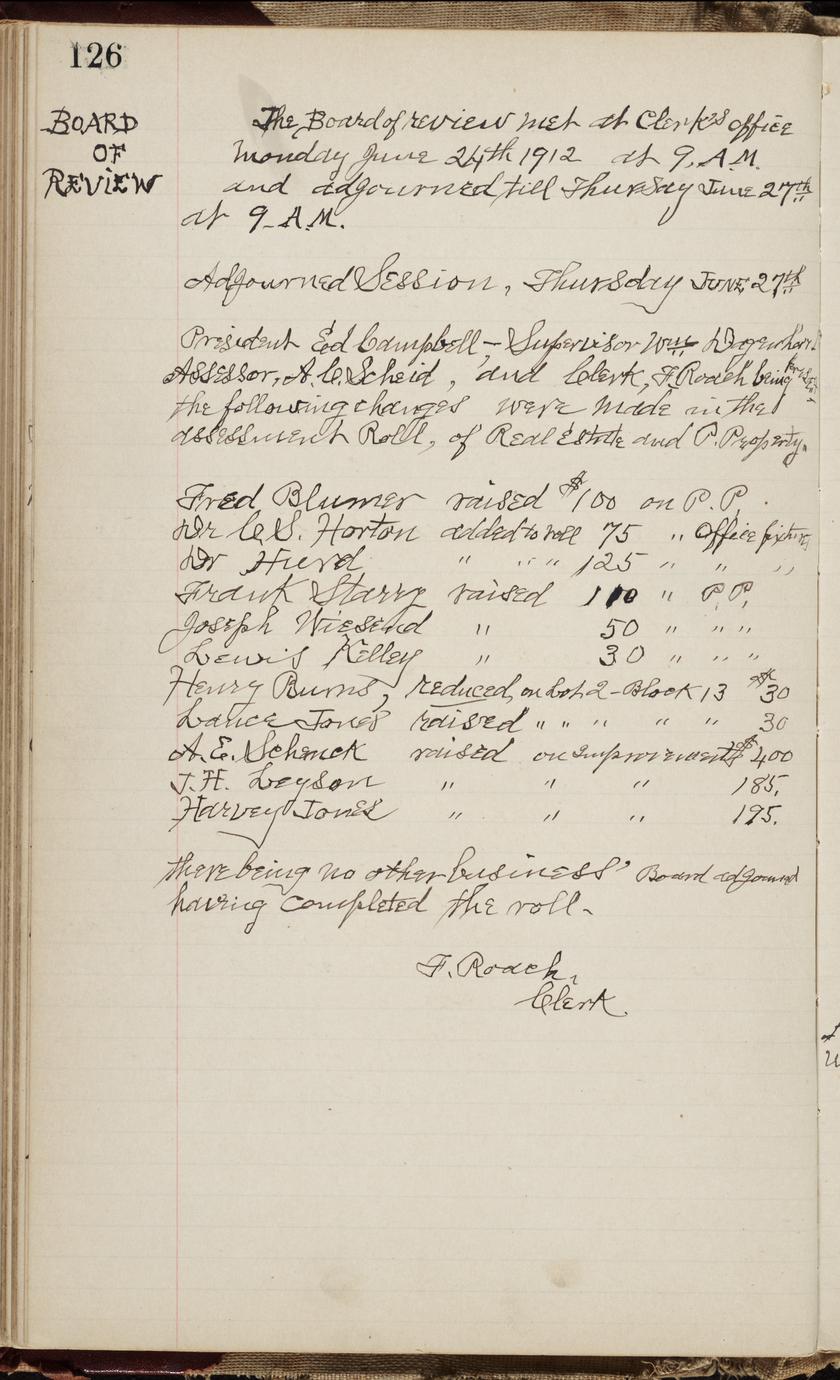 126
BOARD
OF
REVIEW
The Board of review met at Clerk's office
Monday June 24th 1912 at 9, A.M.
and adjourned till Thursday June 27th
at 9 A.M.
Adjourned Session, Thursday JUNE 27th
President Ed Campbell – Supervisor Wm
Assessor, A. C. Scheid, and Clerk, F. Roach being
the following changes were made in the
assessment Roll, of Real Estate and P. Property.
Fred Blumer raised $100 on P. P.
Dr C. S. Horton added to roll 75 " Office fixtures
Dr Hurd " " " 125 " " "
Frank Starry raised 110 " P. P.
Joseph Wiesend " 50 " " "
Lewis Kelley " 30 " " "
Henry Burns, reduced, on Lot 2 – Block 13 $30
Lance Jones raised " " " " " 30
A. E. Schenck raised on Improvements $400
J. H. Leyson " " " 185.
Harvey Jones " " " 195.
there being no other business' Board adjourned
having completed the roll-
F. Roach,
Clerk.